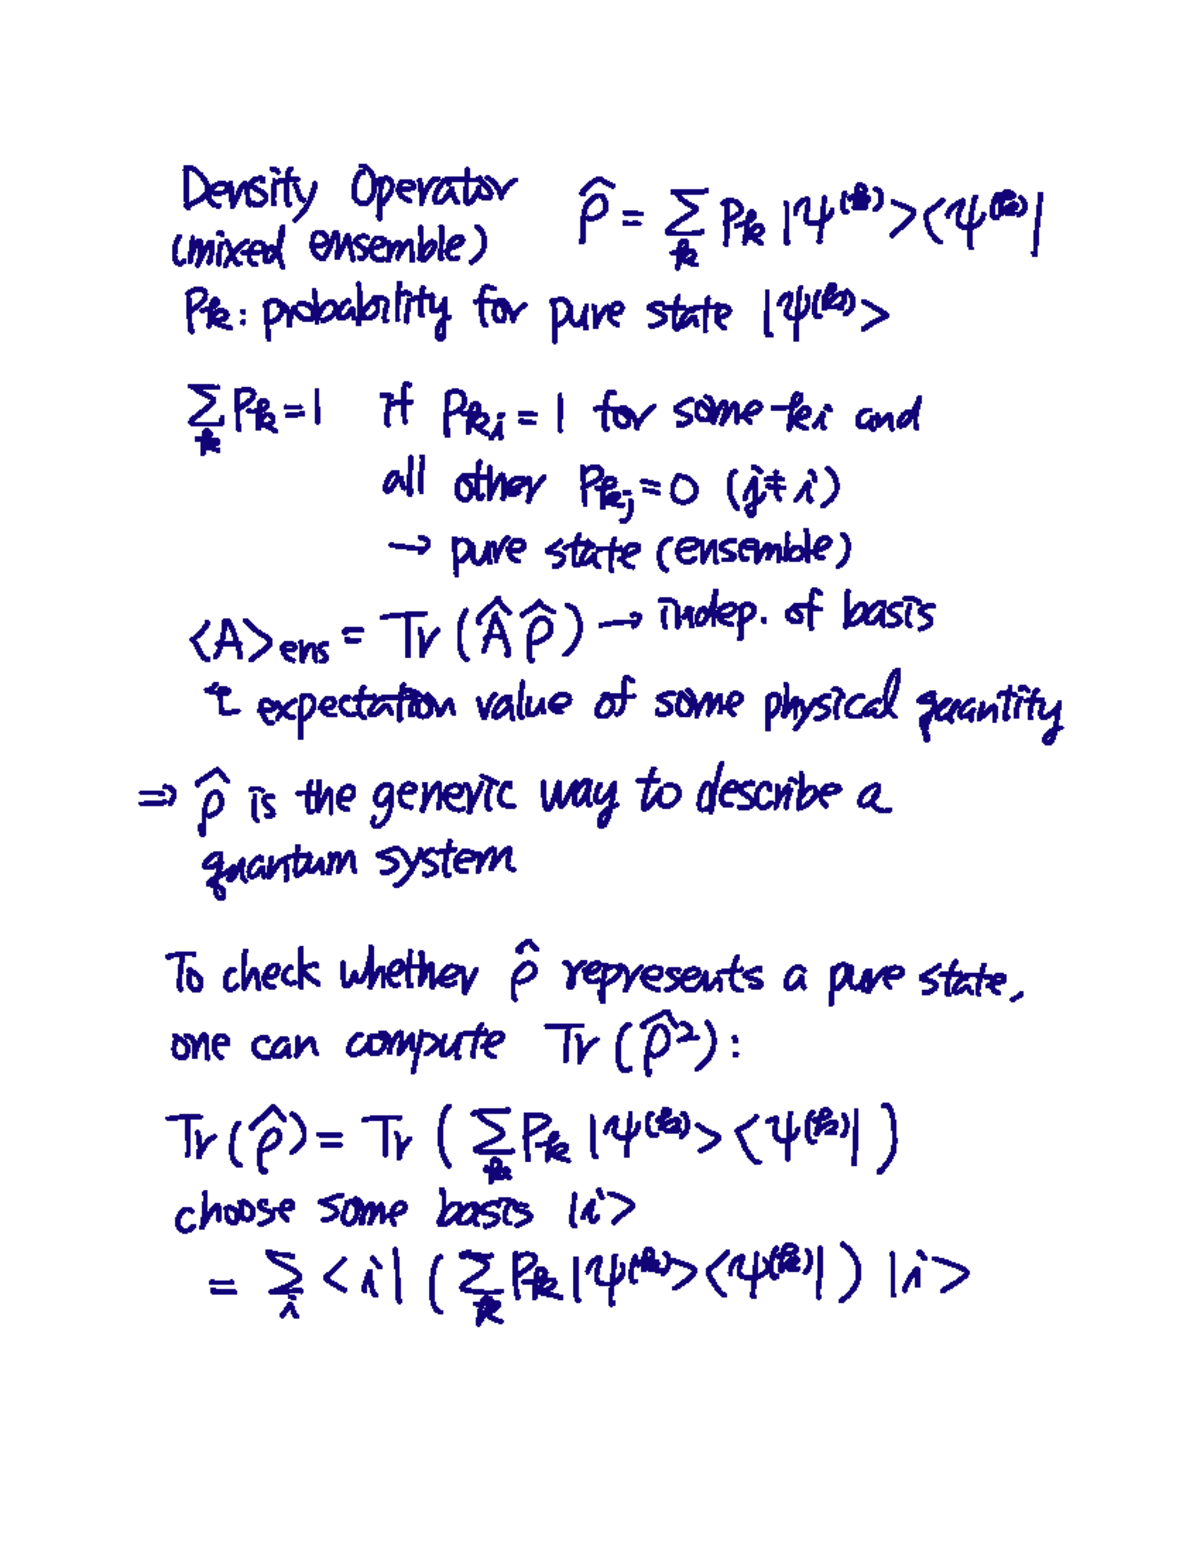 Density Operator ρ̂ = Σ_k P_k |ψ^(k)><ψ^(k)|
(mixed ensemble)
P_k: probability for pure state |ψ^(k)>
Σ_k P_k = 1 if P_ki = 1 for some ki and
all other P_kj = 0 (j≠i)
→ pure state (ensemble)
<A>_ens = Tr (Âρ̂) → indep. of basis
↖ expectation value of some physical quantity
⇒ ρ̂ is the generic way to describe a
quantum system
To check whether ρ̂ represents a pure state,
one can compute Tr (ρ̂²):
Tr (ρ̂) = Tr ( Σ_k P_k |ψ^(k)> <ψ^(k)| )
choose some basis |i>
= Σ_i <i| ( Σ_k P_k |ψ^(k)><ψ^(k)| ) |i>